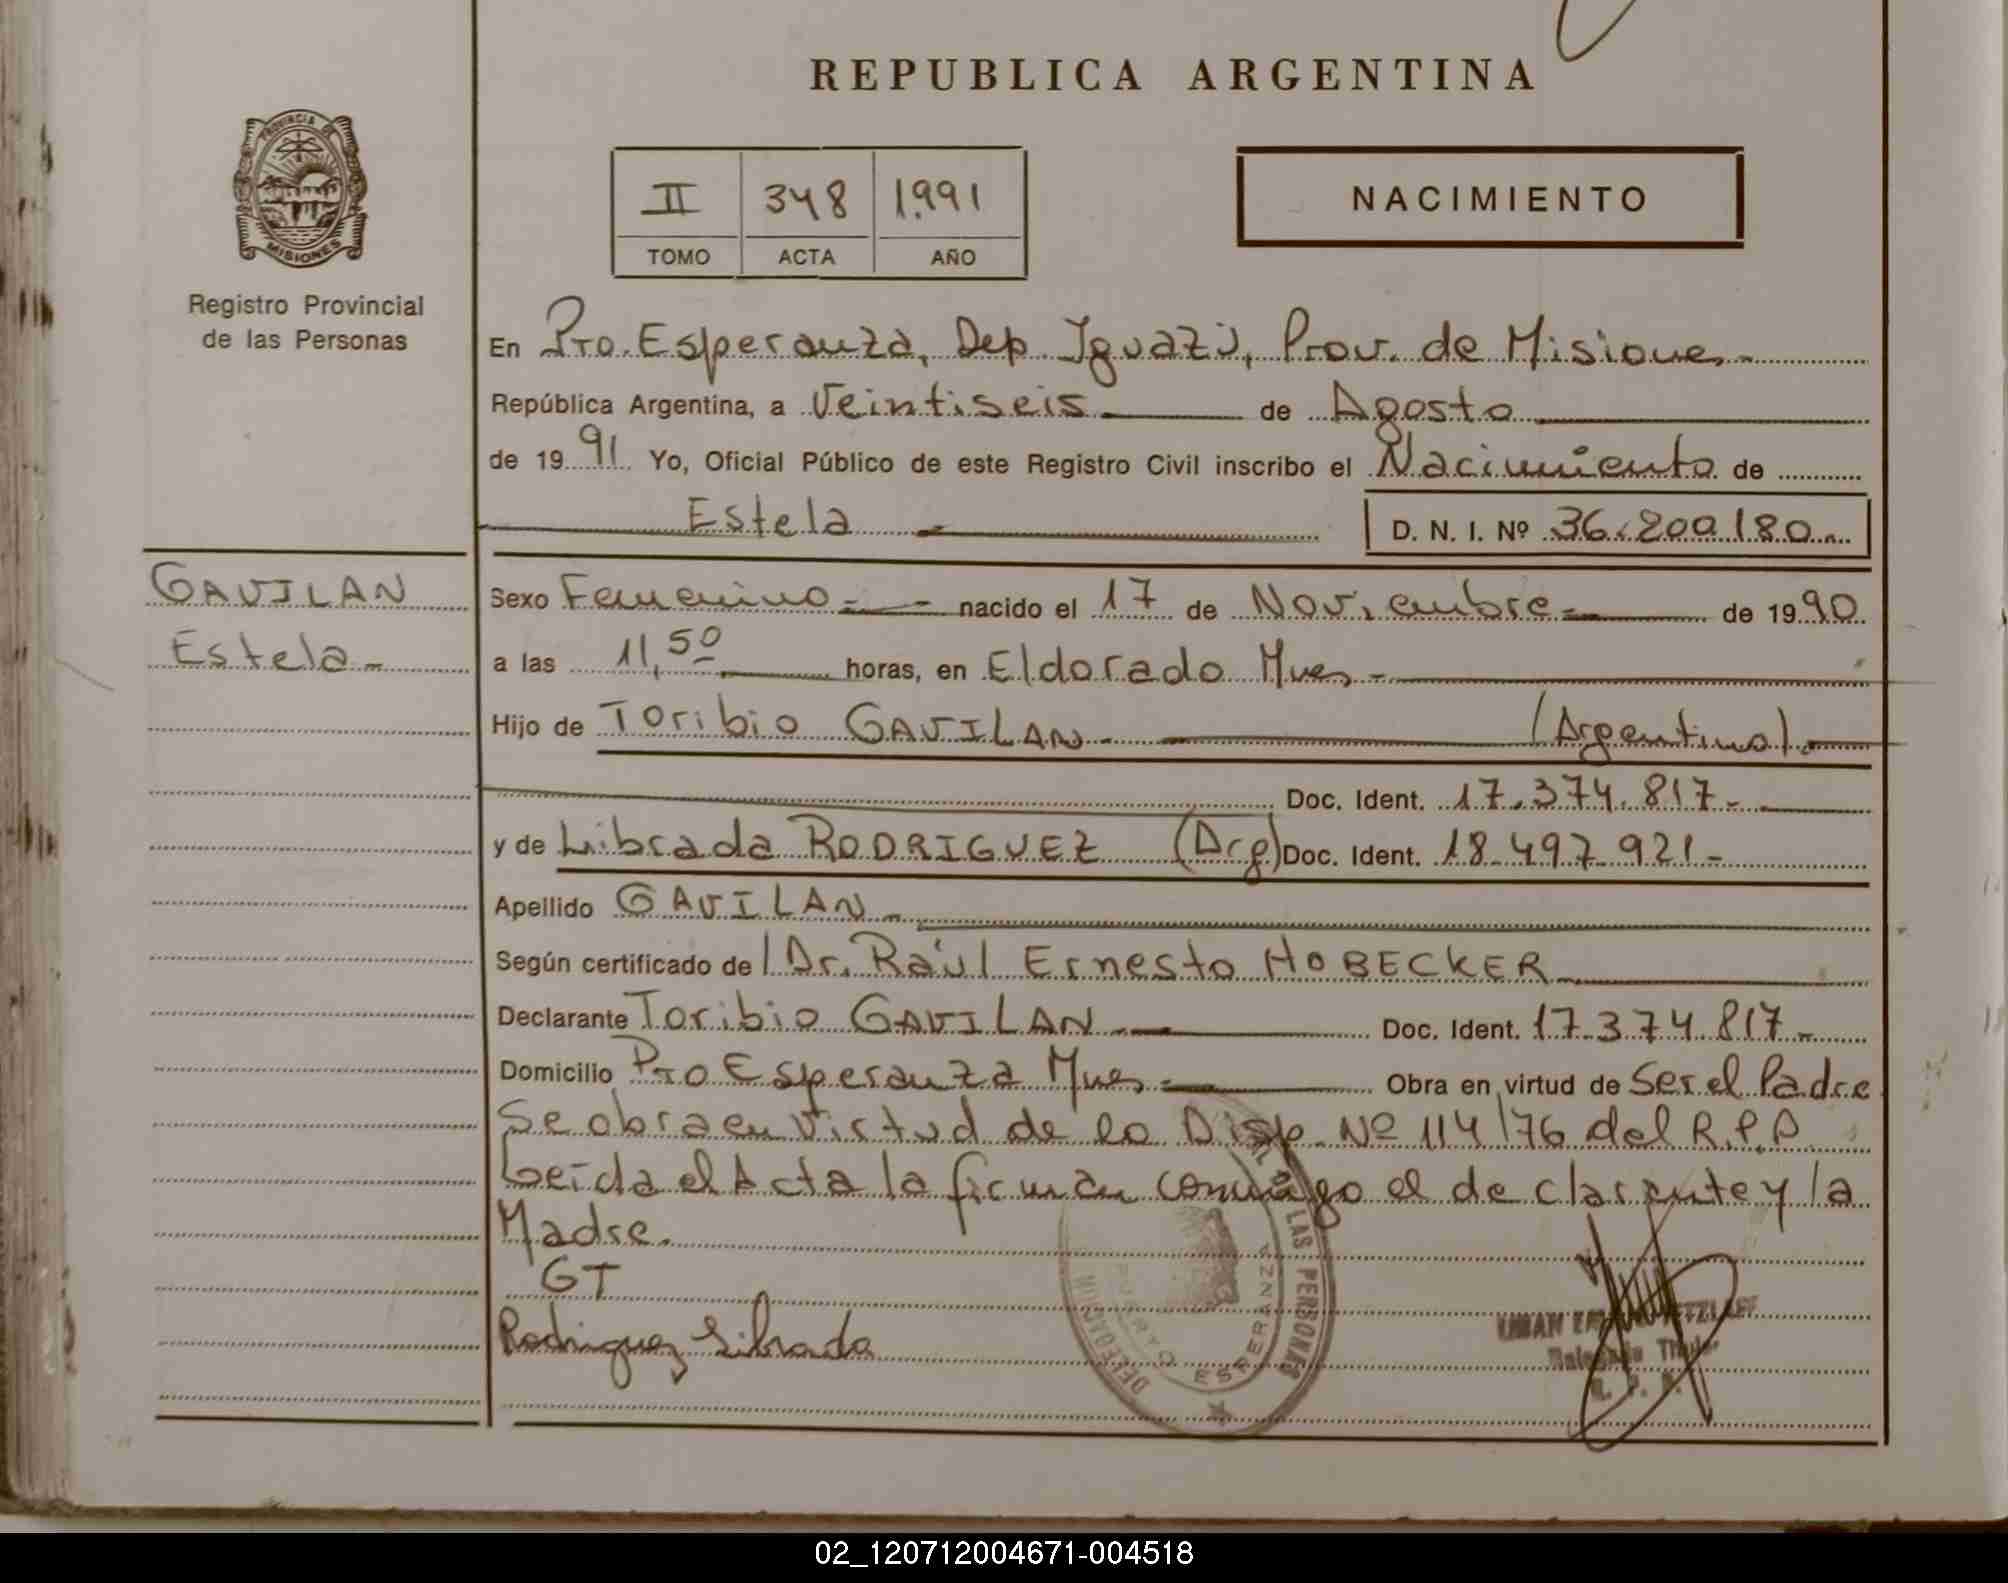 REPUBLICA ARGENTINA
PROVINCIA DE
MISIONES
Registro Provincial
de las Personas
II 348 1.991
TOMO ACTA AÑO
NACIMIENTO
En Pto. Esperanza, Dep. Iguazú, Prov. de Misiones.-
República Argentina, a Veintiseis de Agosto
de 1991. Yo, Oficial Público de este Registro Civil inscribo el Nacimiento de
Estela
D. N. I. Nº 36.200.180..
GAVILAN
Estela-
Sexo Femenino = nacido el 17 de Noviembre = de 1990.
a las 11,50 horas, en Eldorado Mnes.-
Hijo de Toribio GAVILAN - (Argentino).
Doc. Ident. 17.374.817-
y de Librada RODRIGUEZ (Arg) Doc. Ident. 18.497.921-
Apellido GAVILAN -
Según certificado del Dr. Raúl Ernesto HOBECKER
Declarante Toribio GAVILAN - Doc. Ident. 17.374.817-
Domicilio Pto Esperanza Mnes = Obra en virtud de Ser el Padre
Se obra en virtud de la Disp. Nº 114/76 del R.P.P.
Leída el Acta la firman conmigo el declarante y la
Madre.
GT
Rodriguez Librada
DELEGACION
LAS PERSONAS
PUERTO ESPERANZA
Titular